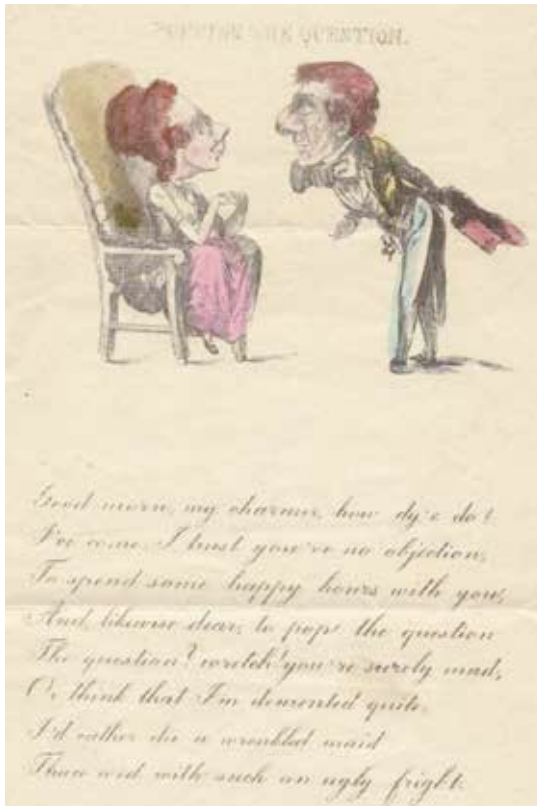 POPPING THE QUESTION.
Good morn, my charmer, how dy'e do!
I've come, I trust you've no objection,
To spend some happy hours with you,
And, likewise dear, to pop the question
The question? wretch! you're surely mad,
Or think that I'm demented quite.
I'd rather die a wrinkled maid
Than wed with such an ugly fright.